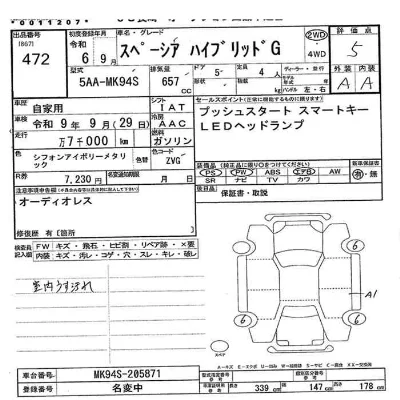 00112071
出品番号 [867] 472
初度登録年月 令和 6年 9月
車名・グレード スペーシア ハイブリッドG
2WD 4WD
評価点 5
型式 5AA-MK94S
排気量 657 cc
ドア 5
定員 4 人
外装 A 内装 A
車歴 自家用
シフト IAT
車検 令和 9年 9月(29日)
冷房 AAC
走行 万 7千000 km
燃料 ガソリン
セールスポイント(正常に機能するものに限ります)
プッシュスタート スマートキー
LEDヘッドランプ
色 シフォンアイボリーメタリック
色替
ZVG
R券 7,230 円
名変通知期限 月 日
PS PW ABS エアB AW
SR ナビ TV カワ
新車保証 有・無
後日品 保証書・取説
オーディオレス
修復歴 有[箇所
検査員記入欄
FW キズ・飛石・ヒビ割・リペア跡・×要
内装 キズ・汚レ・コゲ・穴・スレ・キレ・破レ
室内うすよごれ
6 6
A1
6 6
スペア
車台番号 MK94S-205871
登録番号 名変中
長さ 339 cm
幅 147 cm
高さ 178 cm